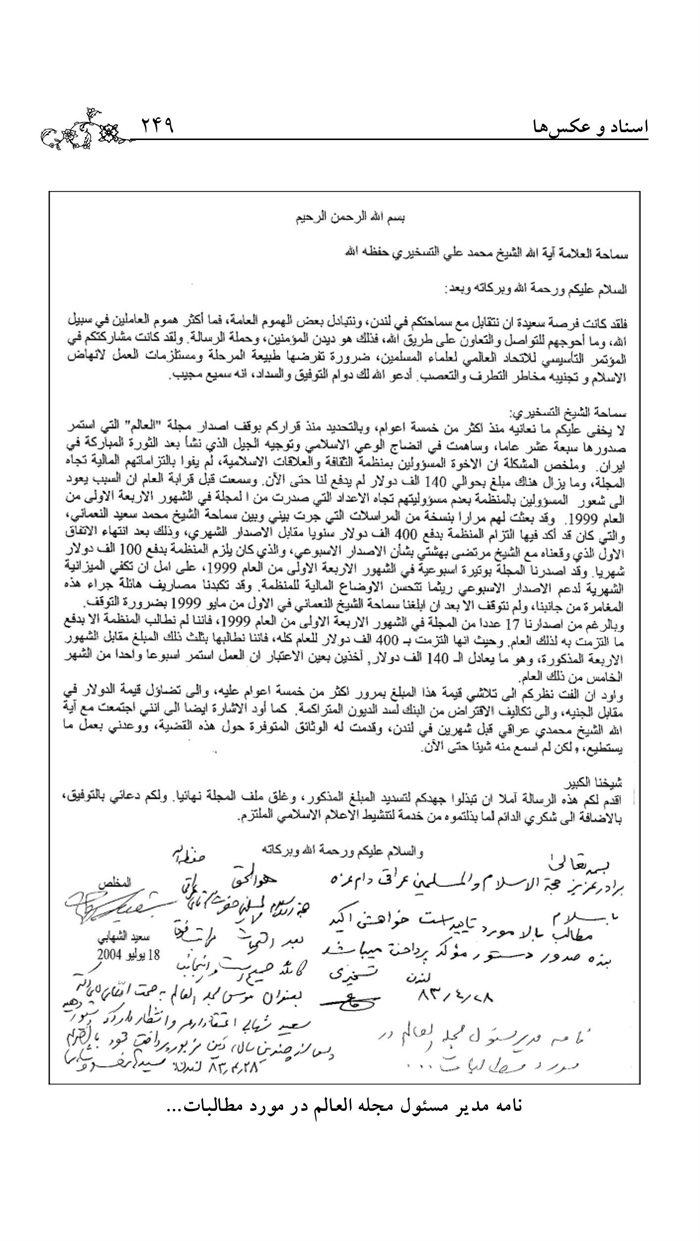 اسناد و عکس‌ها
۲۴۹
بسم الله الرحمن الرحيم
سماحة العلامة آية الله الشيخ محمد علي التسخيري حفظه الله
السلام عليكم ورحمة الله وبركاته وبعد:
فلقد كانت فرصة سعيدة ان نتقابل مع سماحتكم في لندن، ونتبادل بعض الهموم العامة، فما أكثر هموم العاملين في سبيل
الله، وما أحوجهم للتواصل والتعاون على طريق الله، فذلك هو ديدن المؤمنين، وحملة الرسالة. ولقد كانت مشاركتكم في
المؤتمر التأسيسي للاتحاد العالمي لعلماء المسلمين، ضرورة تفرضها طبيعة المرحلة ومستلزمات العمل لانهاض
الاسلام و تجنيبه مخاطر التطرف والتعصب. أدعو الله لك دوام التوفيق والسداد، انه سميع مجيب.
سماحة الشيخ التسخيري:
لا يخفى عليكم ما نعانيه منذ اكثر من خمسة اعوام، وبالتحديد منذ قراركم بوقف اصدار مجلة "العالم" التي استمر
صدورها سبعة عشر عاما، وساهمت في انضاج الوعي الاسلامي وتوجيه الجيل الذي نشأ بعد الثورة المباركة في
ايران. وملخص المشكلة ان الاخوة المسؤولين بمنظمة الثقافة والعلاقات الاسلامية، لم يفوا بالتزاماتهم المالية تجاه
المجلة، وما يزال هناك مبلغ بحوالي 140 الف دولار لم يدفع لنا حتى الآن. وسمعت قبل قرابة العام ان السبب يعود
الى شعور المسؤولين بالمنظمة بعدم مسؤوليتهم تجاه الاعداد التي صدرت من ا لمجلة في الشهور الاربعة الاولى من
العام 1999. وقد بعثت لهم مرارا بنسخة من المراسلات التي جرت بيني وبين سماحة الشيخ محمد سعيد النعماني،
والتي كان قد اكد فيها التزام المنظمة بدفع 400 الف دولار سنويا مقابل الاصدار الشهري، وذلك بعد انتهاء الاتفاق
الاول الذي وقعناه مع الشيخ مرتضى بهشتي بشأن الاصدار الاسبوعي، والذي كان يلزم المنظمة بدفع 100 الف دولار
شهريا. وقد اصدرنا المجلة بوتيرة اسبوعية في الشهور الاربعة الاولى من العام 1999، على امل ان تكفي الميزانية
الشهرية لدعم الاصدار الاسبوعي ريثما تتحسن الاوضاع المالية للمنظمة. وقد تكبدنا مصاريف هائلة جراء هذه
المغامرة من جانبنا، ولم نتوقف الا بعد ان ابلغنا سماحة الشيخ النعماني في الاول من مايو 1999 بضرورة التوقف.
وبالرغم من اصدارنا 17 عددا من المجلة في الشهور الاربعة الاولى من العام 1999، فاننا لم نطالب المنظمة الا بدفع
ما التزمت به لذلك العام. وحيث انها التزمت بـ 400 الف دولار للعام كله، فاننا نطالبها بثلث ذلك المبلغ مقابل الشهور
الاربعة المذكورة، وهو ما يعادل الـ 140 الف دولار, أخذين بعين الاعتبار ان العمل استمر اسبوعا واحدا من الشهر
الخامس من ذلك العام.
واود ان الفت نظركم الى تلاشي قيمة هذا المبلغ بمرور اكثر من خمسة اعوام عليه، والى تضاؤل قيمة الدولار في
مقابل الجنيه، والى تكاليف الاقتراض من البنك لسد الديون المتراكمة. كما أود الاشارة ايضا الى انني اجتمعت مع آية
الله الشيخ محمدي عراقي قبل شهرين في لندن، وقدمت له الوثائق المتوفرة حول هذه القضية، ووعدني بعمل ما
يستطيع، ولكن لم اسمع منه شيئا حتى الآن.
شيخنا الكبير
اقدم لكم هذه الرسالة آملا ان تبذلوا جهدكم لتسديد المبلغ المذكور، وغلق ملف المجلة نهائيا. ولكم دعائي بالتوفيق،
بالاضافة الى شكري الدائم لما بذلتموه من خدمة لتنشيط الاعلام الاسلامي الملتزم.
والسلام عليكم ورحمة الله وبركاته
المخلص
سعيد الشهابي
18 يوليو 2004
بسمه تعالی
برادر عزیز حجة الاسلام والمسلمین عراقی دام عزه
با سلام
مطالب بالا مورد تایید است خواهش اکید
بنده صدور دستور مؤکد پرداخت میباشد
لندن تسخیری
۸۳/۴/۲۸
هو الحق
بعنوان موسس مجله العالم به
سعید شهابی اعتقاد دارم و انتظار دارم که دستور دهید
پس از چندین سال، دین مزبور پرداخت شود
۸۳/۴/۲۸ لندن
نامه مدیر مسئول مجله العالم در
مورد مطالبات ...
نامه مدیر مسئول مجله العالم در مورد مطالبات...